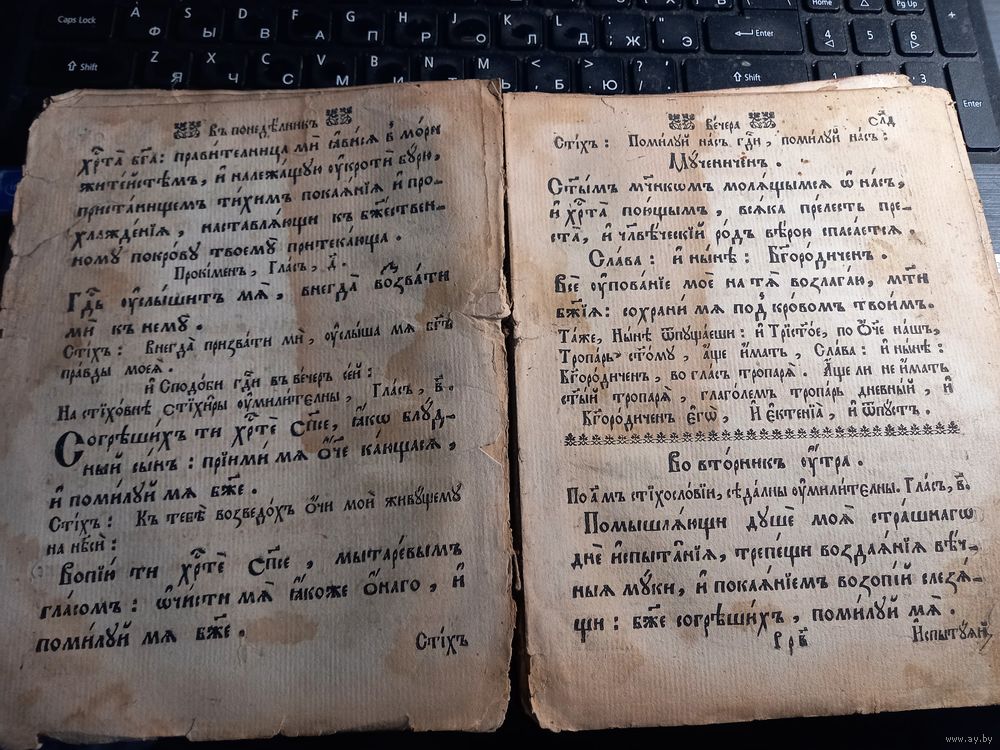 Въ понедѣлникъ
хрⷭ҇та̀ бг҃а: прави́телница мѝ ꙗ҆ви́сѧ в̾ мо́ри
жите́йстѣмъ, и҆ належа́щꙋю ᲂу҆кротѝ бꙋ́рю,
приста́нищемъ ти́химъ покаѧ́нїѧ и҆ про-
хлажде́нїѧ, наставлѧ́ющи къ бж҃е́ствен-
номꙋ покро́вꙋ твоемꙋ̀ притека́юща.
Проки́менъ, Гла́съ, д҃.
Гдⷭ҇ь ᲂу҆слы́шитъ мѧ̀, внегда̀ воззва́ти
мѝ къ немꙋ̀.
Сті́хъ: Внегда̀ призва́ти мѝ, ᲂу҆слы́ша мѧ бг҃ъ
пра́вды моеѧ̀.
и҆ Сподо́би гдⷭ҇и въ ве́черъ се́й:
На стїхо́внѣ стїхи̑ры ᲂу҆мили́телны, Гла́съ, в҃.
Согрѣши́хъ ти хрⷭ҇тѐ сп҃се, ꙗ҆́кѡ блꙋ́д-
ный сы́нъ: прїимѝ мѧ ѻ҆́ч҃е ка́ющаесѧ,
и҆ поми́лꙋй мѧ бж҃е.
Сті́хъ: Къ тебѣ̀ возведо́хъ ѻ҆́чи моѝ живꙋ́щемꙋ
на нб҃сѝ:
Вопїю́ ти хрⷭ҇тѐ сп҃се, мытаре́вымъ
гла́сомъ: ѡ҆чи́сти мѧ̀ ꙗ҆́коже ѻ҆́наго, и҆
поми́лꙋй мѧ бж҃е.
Сті́хъ
Ве́чера
слд
Сті́хъ: Поми́лꙋй на́съ гдⷭ҇и, поми́лꙋй на́съ:
Мꙋ́чениченъ.
Ст҃ы́мъ мч҃нкѡмъ молѧ́щымсѧ ѡ҆ на́съ,
и҆ хрⷭ҇та̀ пою́щымъ, всѧ́ка пре́лесть пре-
ста̀, и҆ чл҃вѣ́ческїй ро́дъ вѣ́рою спаса́етсѧ.
Сла́ва: и҆ ны́нѣ: Бг҃оро́диченъ.
Всѐ ᲂу҆пова́нїе моѐ на тѧ̀ возлага́ю, мт҃и
бж҃їѧ: сохрани́ мѧ под̾ кро́вомъ твои́мъ.
Та́же, Ны́нѣ ѿпꙋща́еши: и҆ Трист҃о́е, по Ѻ҆́ч҃е на́шъ,
Тропа́рь ст҃о́мꙋ, а҆́ще и҆́мать, Сла́ва: и҆ ны́нѣ:
Бг҃оро́диченъ, во гла́съ тропарѧ̀. А҆́ще ли не и҆́мать
ст҃ы́й тропарѧ̀, глаго́лемъ тропа́рь дневны́й, и҆
Бг҃оро́диченъ є҆гѡ̀, И҆ є҆ктенїа̀, и҆ ѿпꙋ́стъ.
Во вто́рникъ ᲂу҆́тра.
По а҃мъ стїхосло́вїи, сѣда́лны ᲂу҆мили́телны. Гла́съ, в҃.
Помышлѧ́ющи дꙋшѐ моѧ̀ стра́шнагѡ
днѐ и҆спыта́нїѧ, трепе́щи воздаѧ́нїѧ вѣ́ч-
ныѧ мꙋ́ки, и҆ покаѧ́нїемъ возопі́й слезѧ́-
щи: бж҃е согрѣши́хъ, поми́лꙋй мѧ̀.
Ррв҃
И҆спытꙋ́ѧй
Caps Lock
A Ф
S Ы
D В
F А
G П
H Р
J О
K Л
L Д
: ; Ж
" ' Э
Enter
Shift
Z Я
X Ч
C С
V М
B И
N Т
M Ь
< , Б
> . Ю
? /
Shift
Home
Pg Up
+
4
5
6
1
3
Enter
www.ay.by